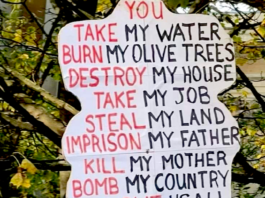 YOU
TAKE MY WATER
BURN MY OLIVE TREES
DESTROY MY HOUSE
TAKE MY JOB
STEAL MY LAND
IMPRISON MY FATHER
KILL MY MOTHER
BOMB MY COUNTRY
US ALL